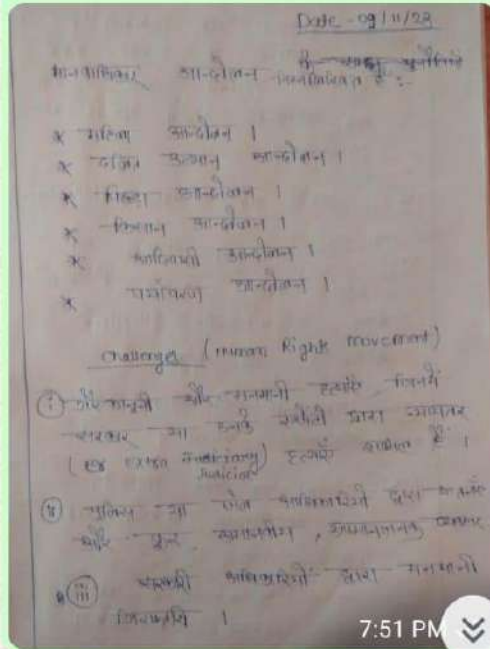 Date - 09/11/23
मानवाधिकार आन्दोलन निम्नलिखित है :-
* महिला आन्दोलन ।
* दलित उत्थान आन्दोलन ।
* शिक्षा आन्दोलन ।
* किसान आन्दोलन ।
* आदिवासी आन्दोलन ।
* पर्यावरण आन्दोलन ।
Challenges (Human Rights movement)
(i) गैर कानूनी और मनमानी हत्याएँ जिनमें
सरकार या उनके एजेंटों द्वारा
हत्याएँ शामिल हैं ।
(ii) पुलिस या जेल अधिकारियों द्वारा
और क्रूर, अमानवीय, अपमानजनक व्यवहार
(iii) सरकारी अधिकारियों द्वारा मनमानी
गिरफ्तारी ।
7:51 PM